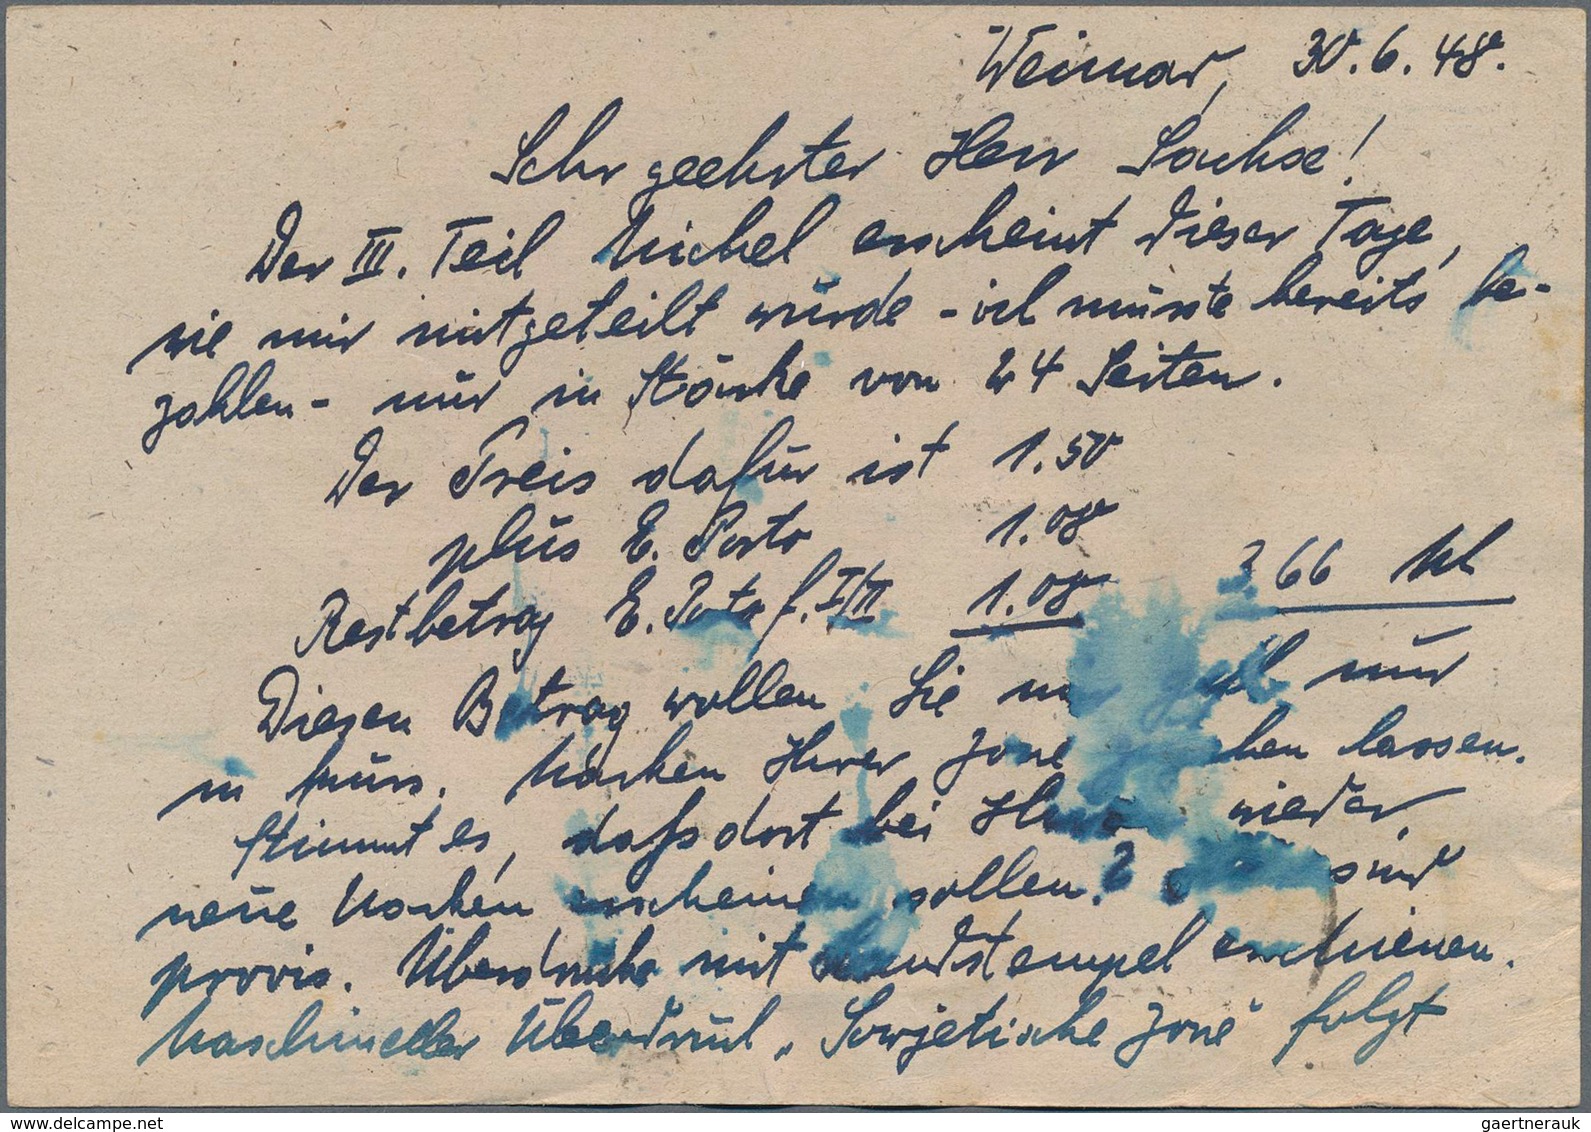 Weimar, 30.6.48.
Sehr geehrter Herr Sachse!
Der III. Teil Michel erscheint dieser Tage,
wie mir mitgeteilt wurde - ich musste bereits be-
zahlen - nur in Stärke von 24 Seiten.
Der Preis dafür ist 1.50
plus E. Porto 1.08
Restbetrag E. Porto f. I/II 1.08 366 M
Diesen Betrag wollen Sie nur
in kurs. Marken Ihrer Zone lassen.
Stimmt es, dass dort bei Ihnen wieder
neue Marken erscheinen sollen? sind
provis. Überdrucke mit Handstempel erschienen.
Maschineller Überdruck „Sowjetische Zone" folgt
gaertnerauk